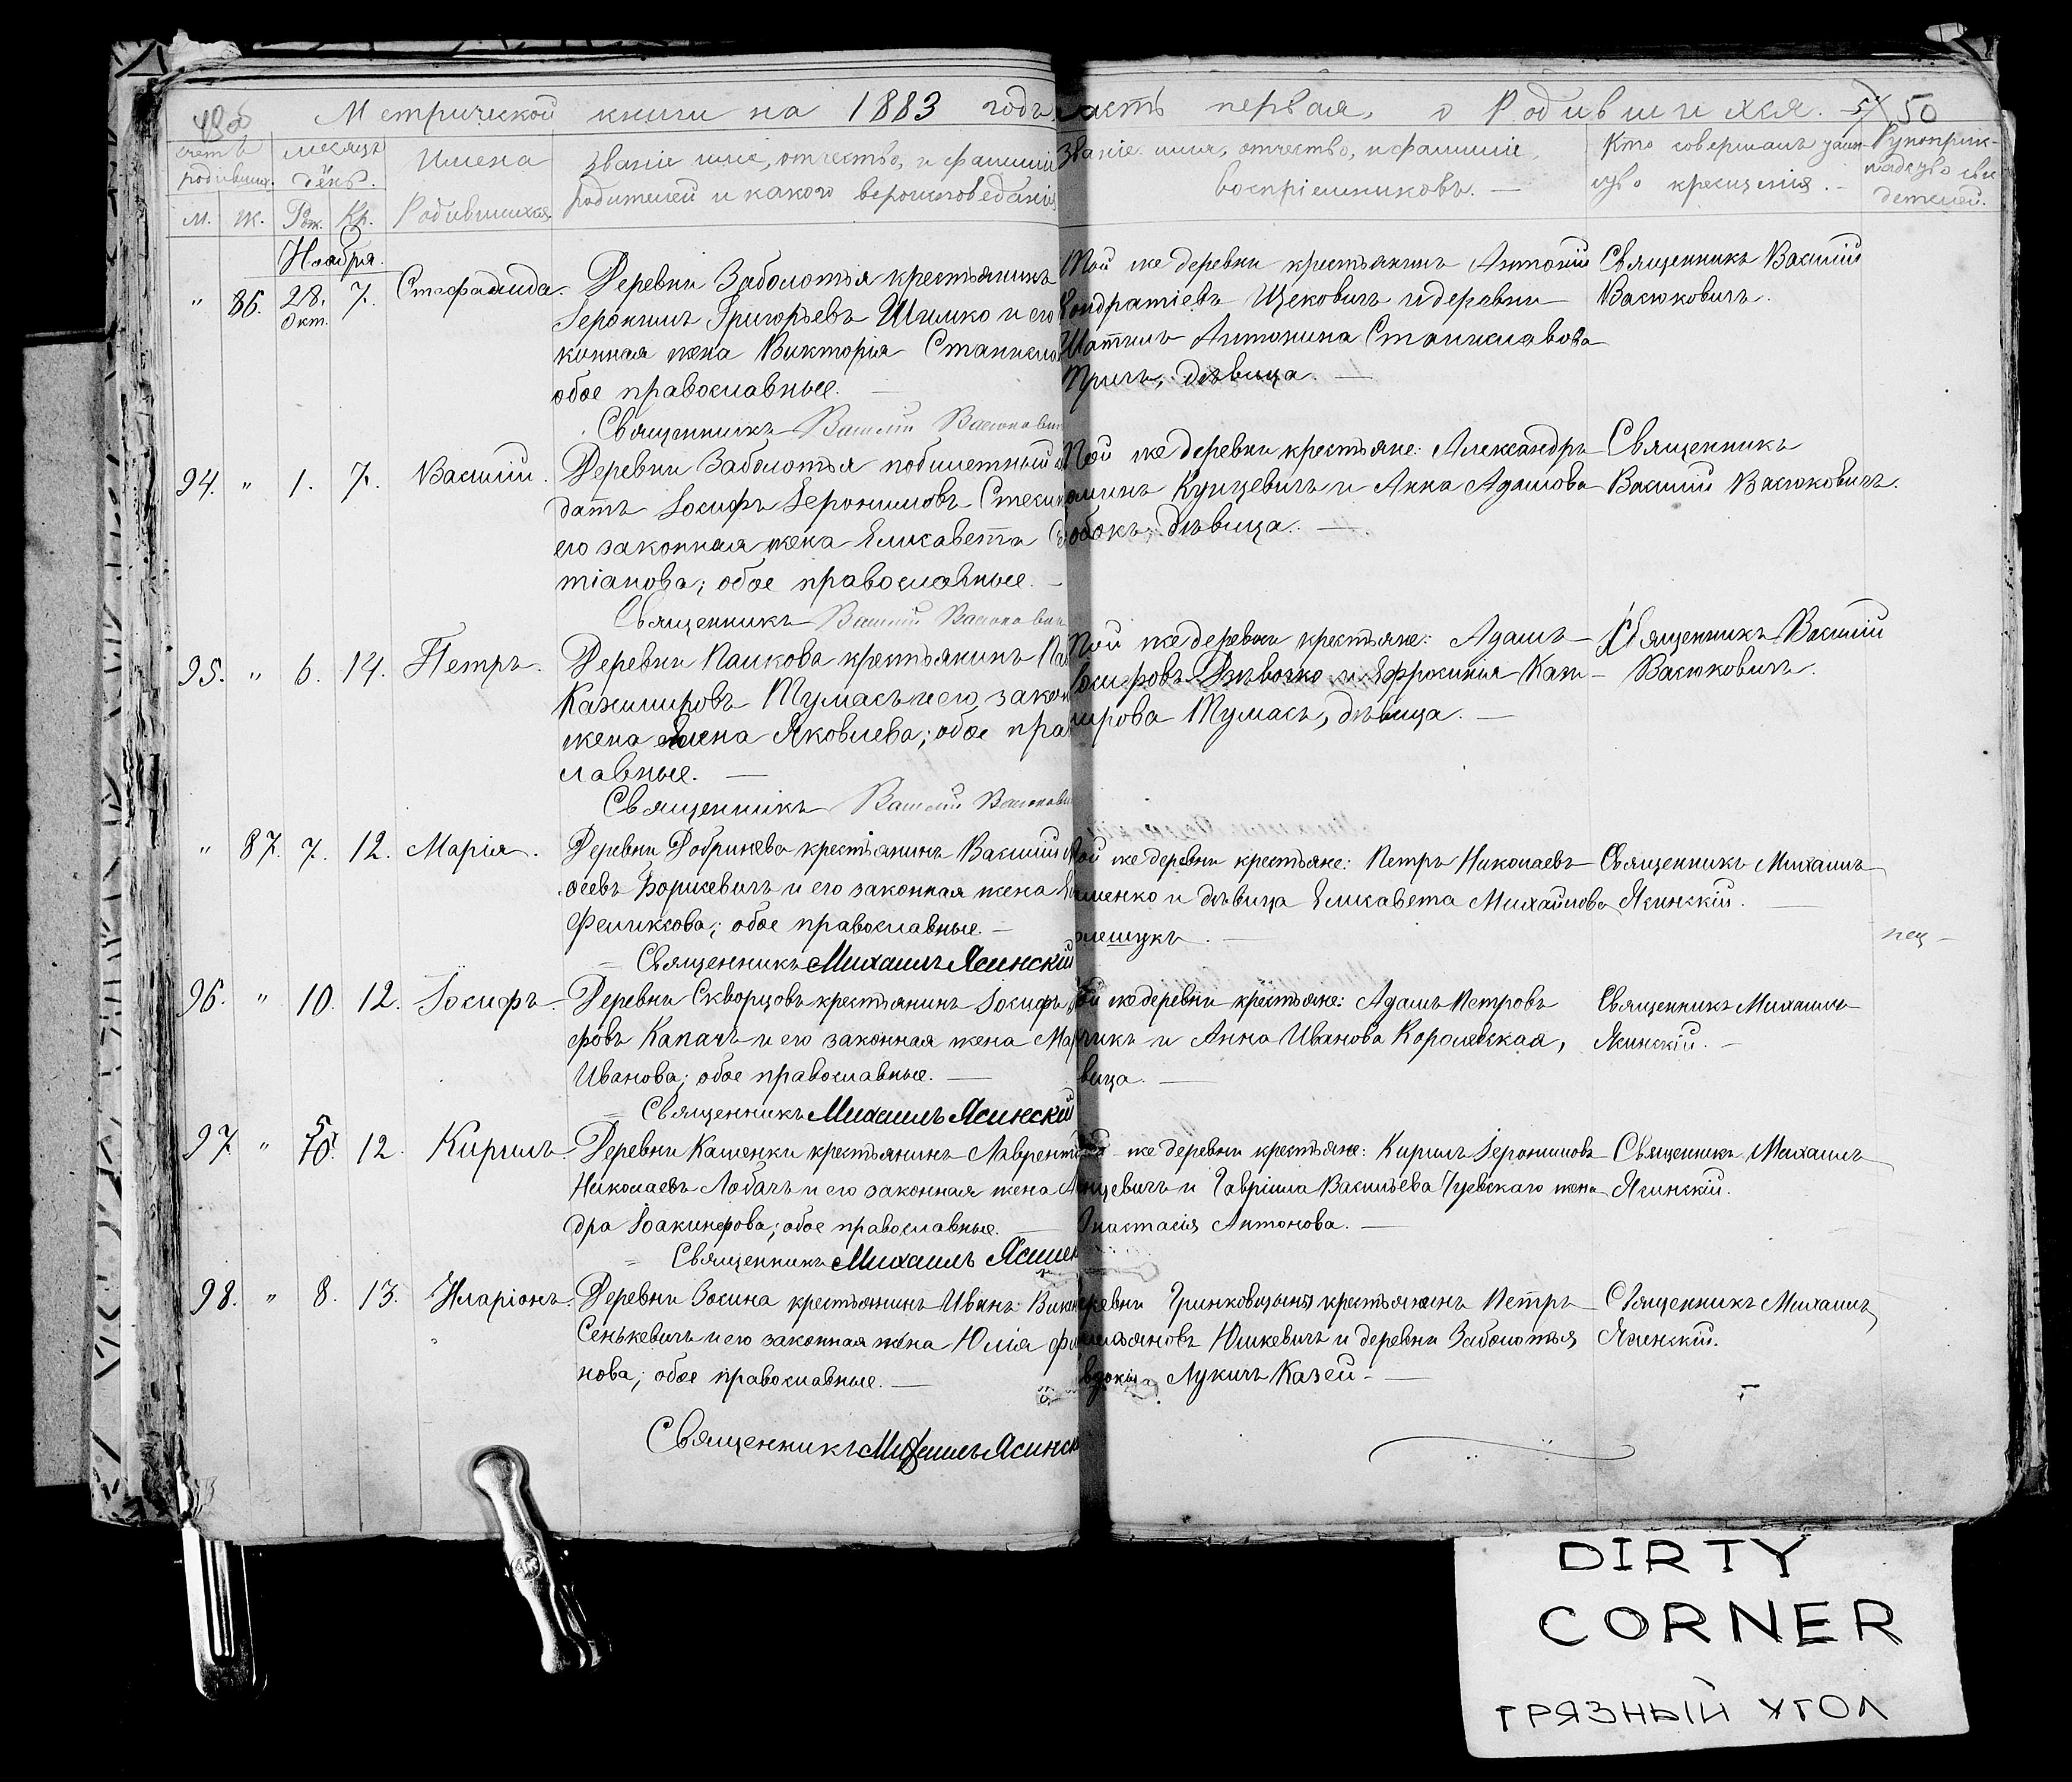 Метрической книги на 1883 годъ
асть первая, о Родившихся. 50
счетъ родивших.
месяцъ день.
Имена Родившихся
Званіе имя, отчество, и фамиліи
родителей и какого вероисповеданія
Званіе имя, отчество, и фамилія
воспріемниковъ. —
Кто совершалъ таин-
ство крещенія. —
Рукоприк-
ладство сви
детелей.
м. ж. Рож. Кр.
Ноября.
" 86. 28. окт. 7. Стефанида.
Деревни Заболотья крестьянинъ
Іеронимъ Григорьевъ Шимко и его
конная жена Викторія Станисла
обое православные. —
Священникъ Василій Васюкович
Той же деревни крестьянинъ Антоній
Кондратіевъ Щековичъ и деревни
Антонина Станиславова
дѣвица. —
Священникъ Василій
Васюковичъ.
94. " 1. 7. Василій.
Деревни Заболотья побилетный
датъ Іосифъ Іеронимовъ
его законная жена Елисавета
тіанова; обое православные. —
Священникъ Василій Васюкович
Той же деревни крестьяне: Александръ
Купцевичъ и Анна Адамова
дѣвица. —
Священникъ
Василій Васюковичъ.
95. " 6. 14. Петръ.
Деревни Панкова крестьянинъ
Казимировъ Тумасъ и его закон
жена Елена Яковлева; обое пра
лавные. —
Священникъ Василій Васюкови
Той же деревни крестьяне: Адамъ
Іосифовъ Дѣвочко и Ефросинія Кази-
мирова Тумасъ, дѣвица. —
Священникъ Василій
Васюковичъ.
" 87. 7. 12. Марія.
Деревни Добринева крестьянинъ Василій
сеевъ Боришевичъ и его законная жена
Феликсова; обое православные. —
Священникъ Михаилъ Ясинскій
ой же деревни крестьяне: Петръ Николаевъ
менко и дѣвица Елисавета Михайлова
олещукъ. —
Священникъ Михаилъ
Ясинскій. —
96. " 10. 12. Іосифъ.
Деревни Скворцовъ крестьянинъ Іосифъ
фовъ Капачъ и его законная жена Мар
Иванова; обое православные. —
Священникъ Михаилъ Ясинскій
ой же деревни крестьяне: Адамъ Петровъ
чикъ и Анна Иванова Королевская,
вица. —
Священникъ Михаилъ
Ясинскій. —
97. " 5 10. 12. Кирилъ.
Деревни Каменки крестьянинъ Лаврентій
Николаевъ Лобачъ и его законная жена
дра Іоакинфова; обое православные. —
Священникъ Михаилъ Ясинск
же деревни крестьяне: Кирилъ Іеронимовъ
нцевичъ и Гавріила Васильева Гуревскаго жена
Анастасія Антонова. —
Священникъ Михаилъ
Ясинскій.
98. " 8. 13. Иларіонъ.
Деревни Зосина крестьянинъ Иванъ
Сенькевичъ и его законная жена Юлія
нова; обое православные. —
Священникъ Михаилъ Ясинск
еревни Гринковщины крестьянинъ Петръ
Юшкевичъ и деревни Заболотья
Лукичъ Казей. —
Священникъ Михаилъ
Ясинскій.
DIRTY
CORNER
ГРЯЗНЫЙ УГОЛ